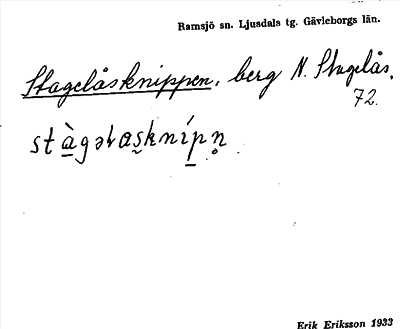 Ramsjö sn. Ljusdals tg. Gävleborgs län.
Stagelåsknippen, berg N. Stagelås,
72.
stàgəlɑsknípn̥
Erik Eriksson 1933